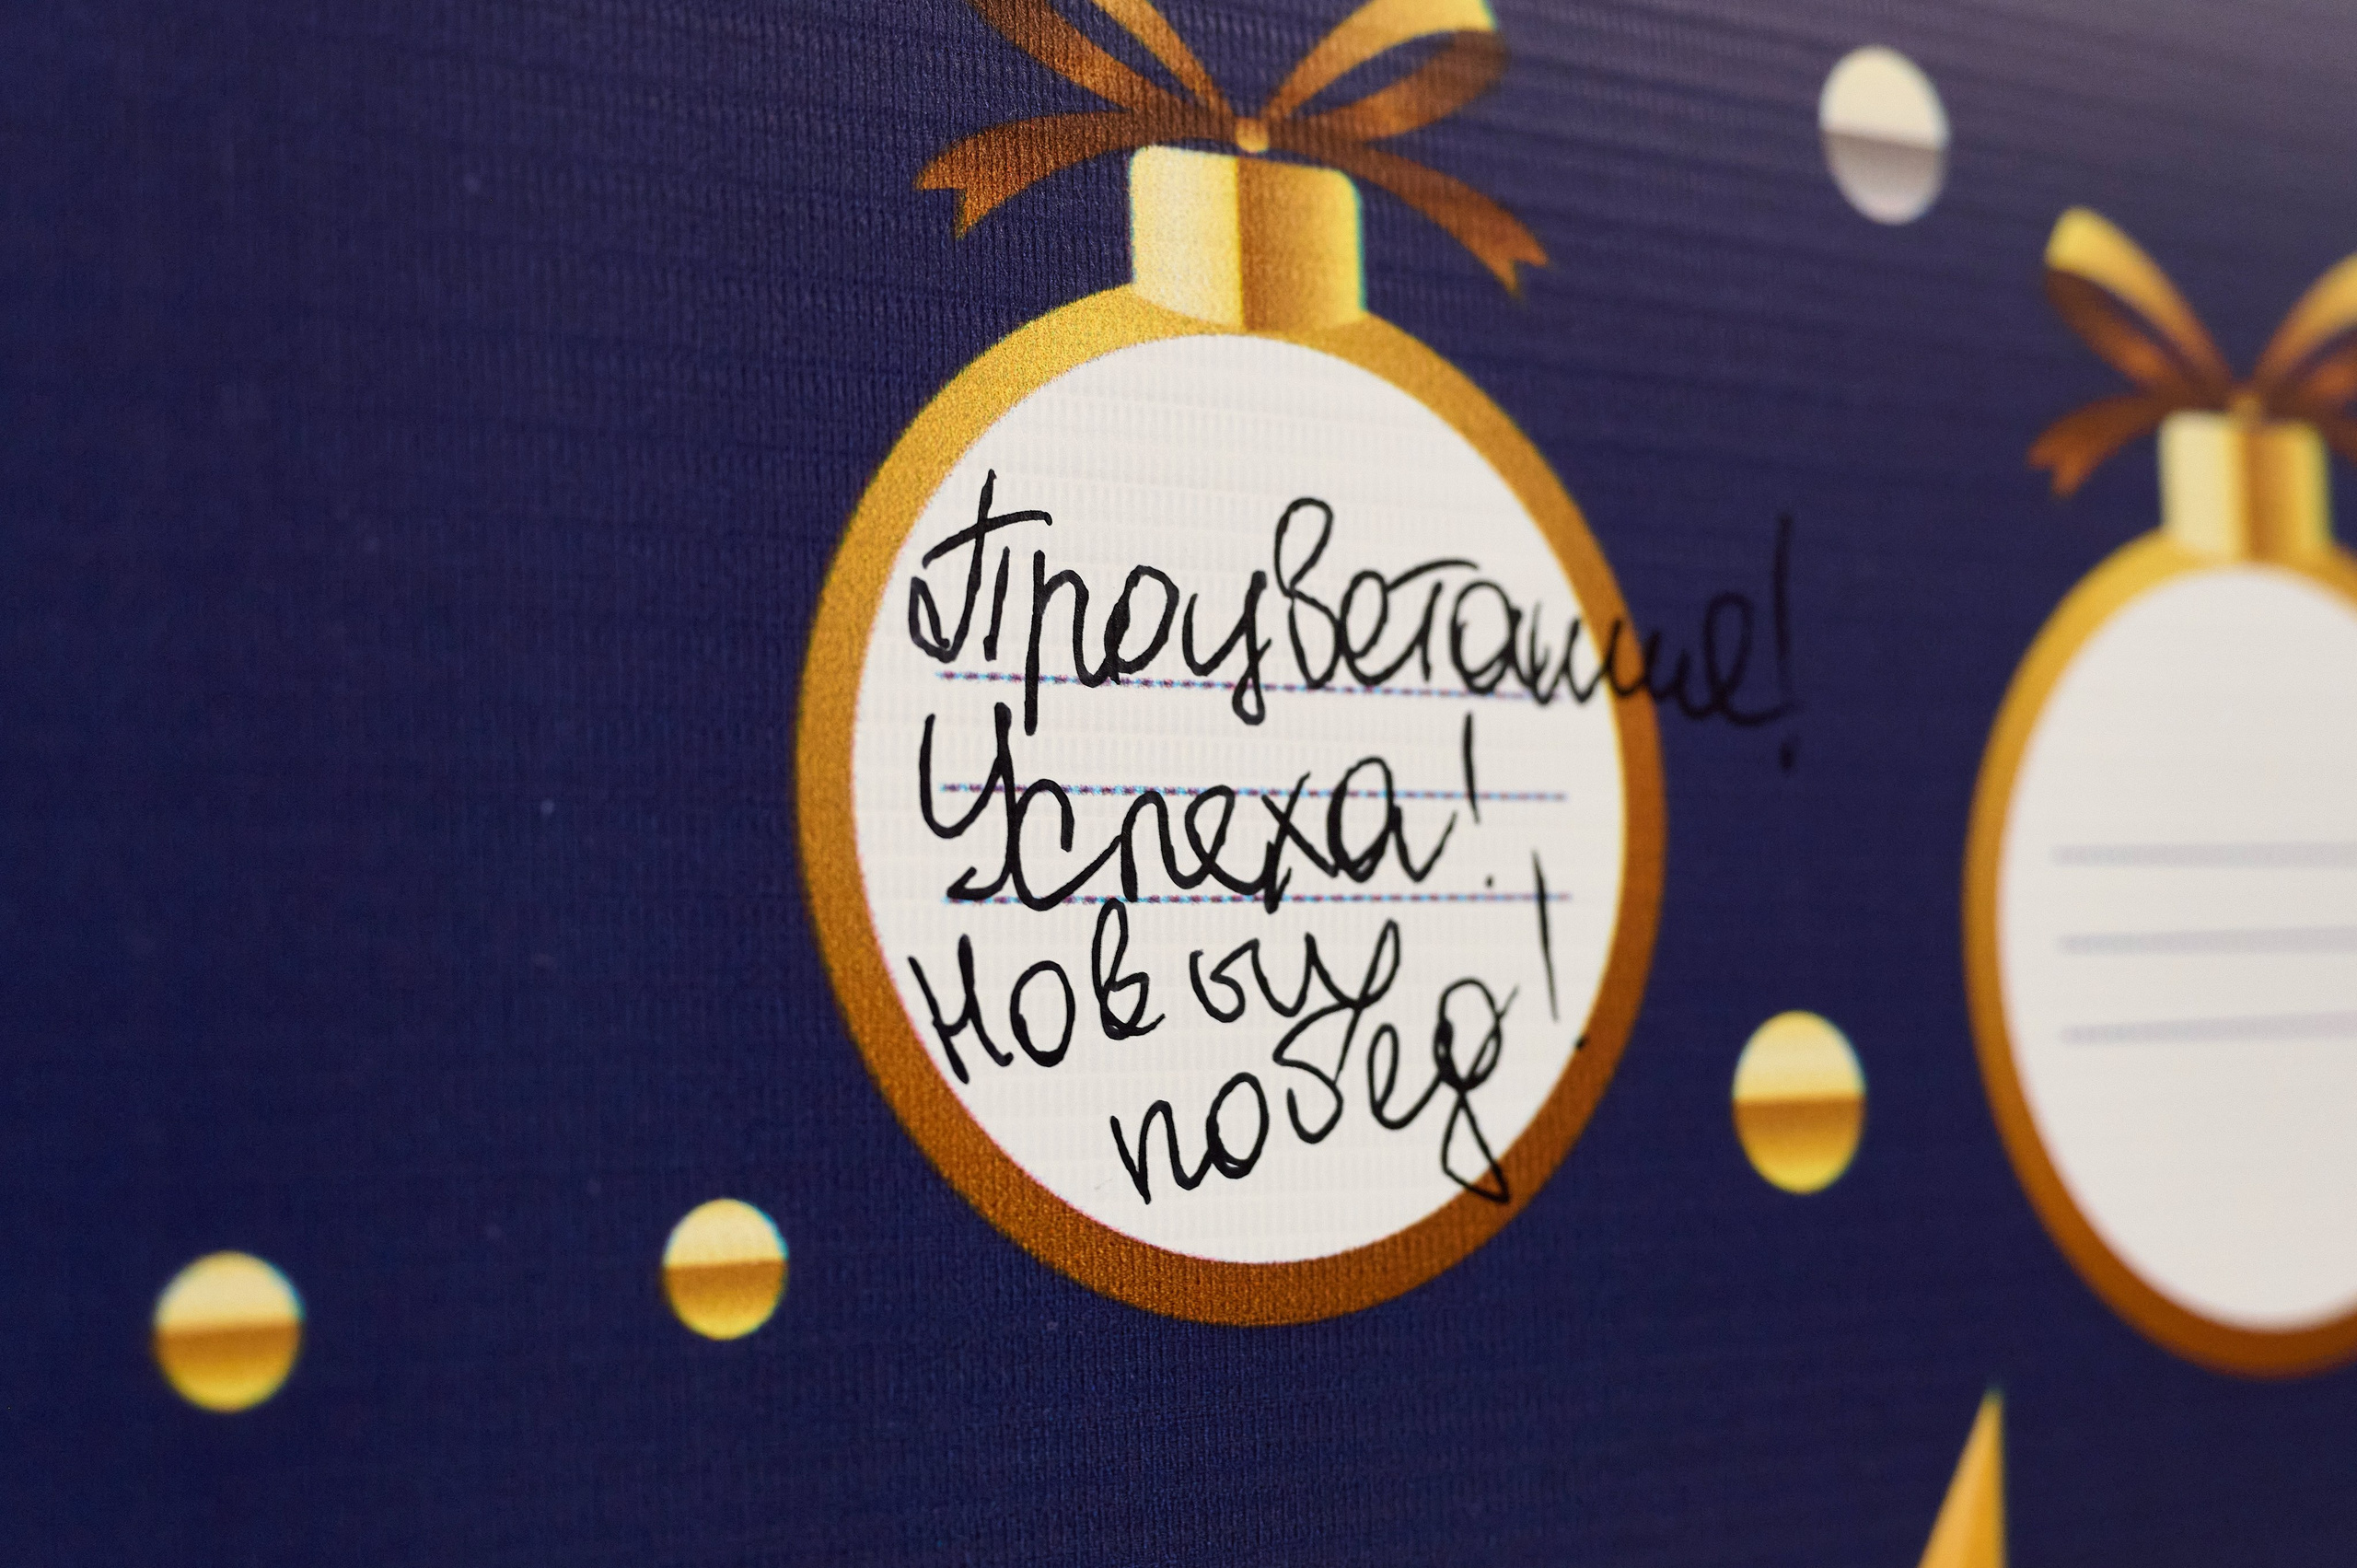 Процветание!
Успеха!
Новых
побед!